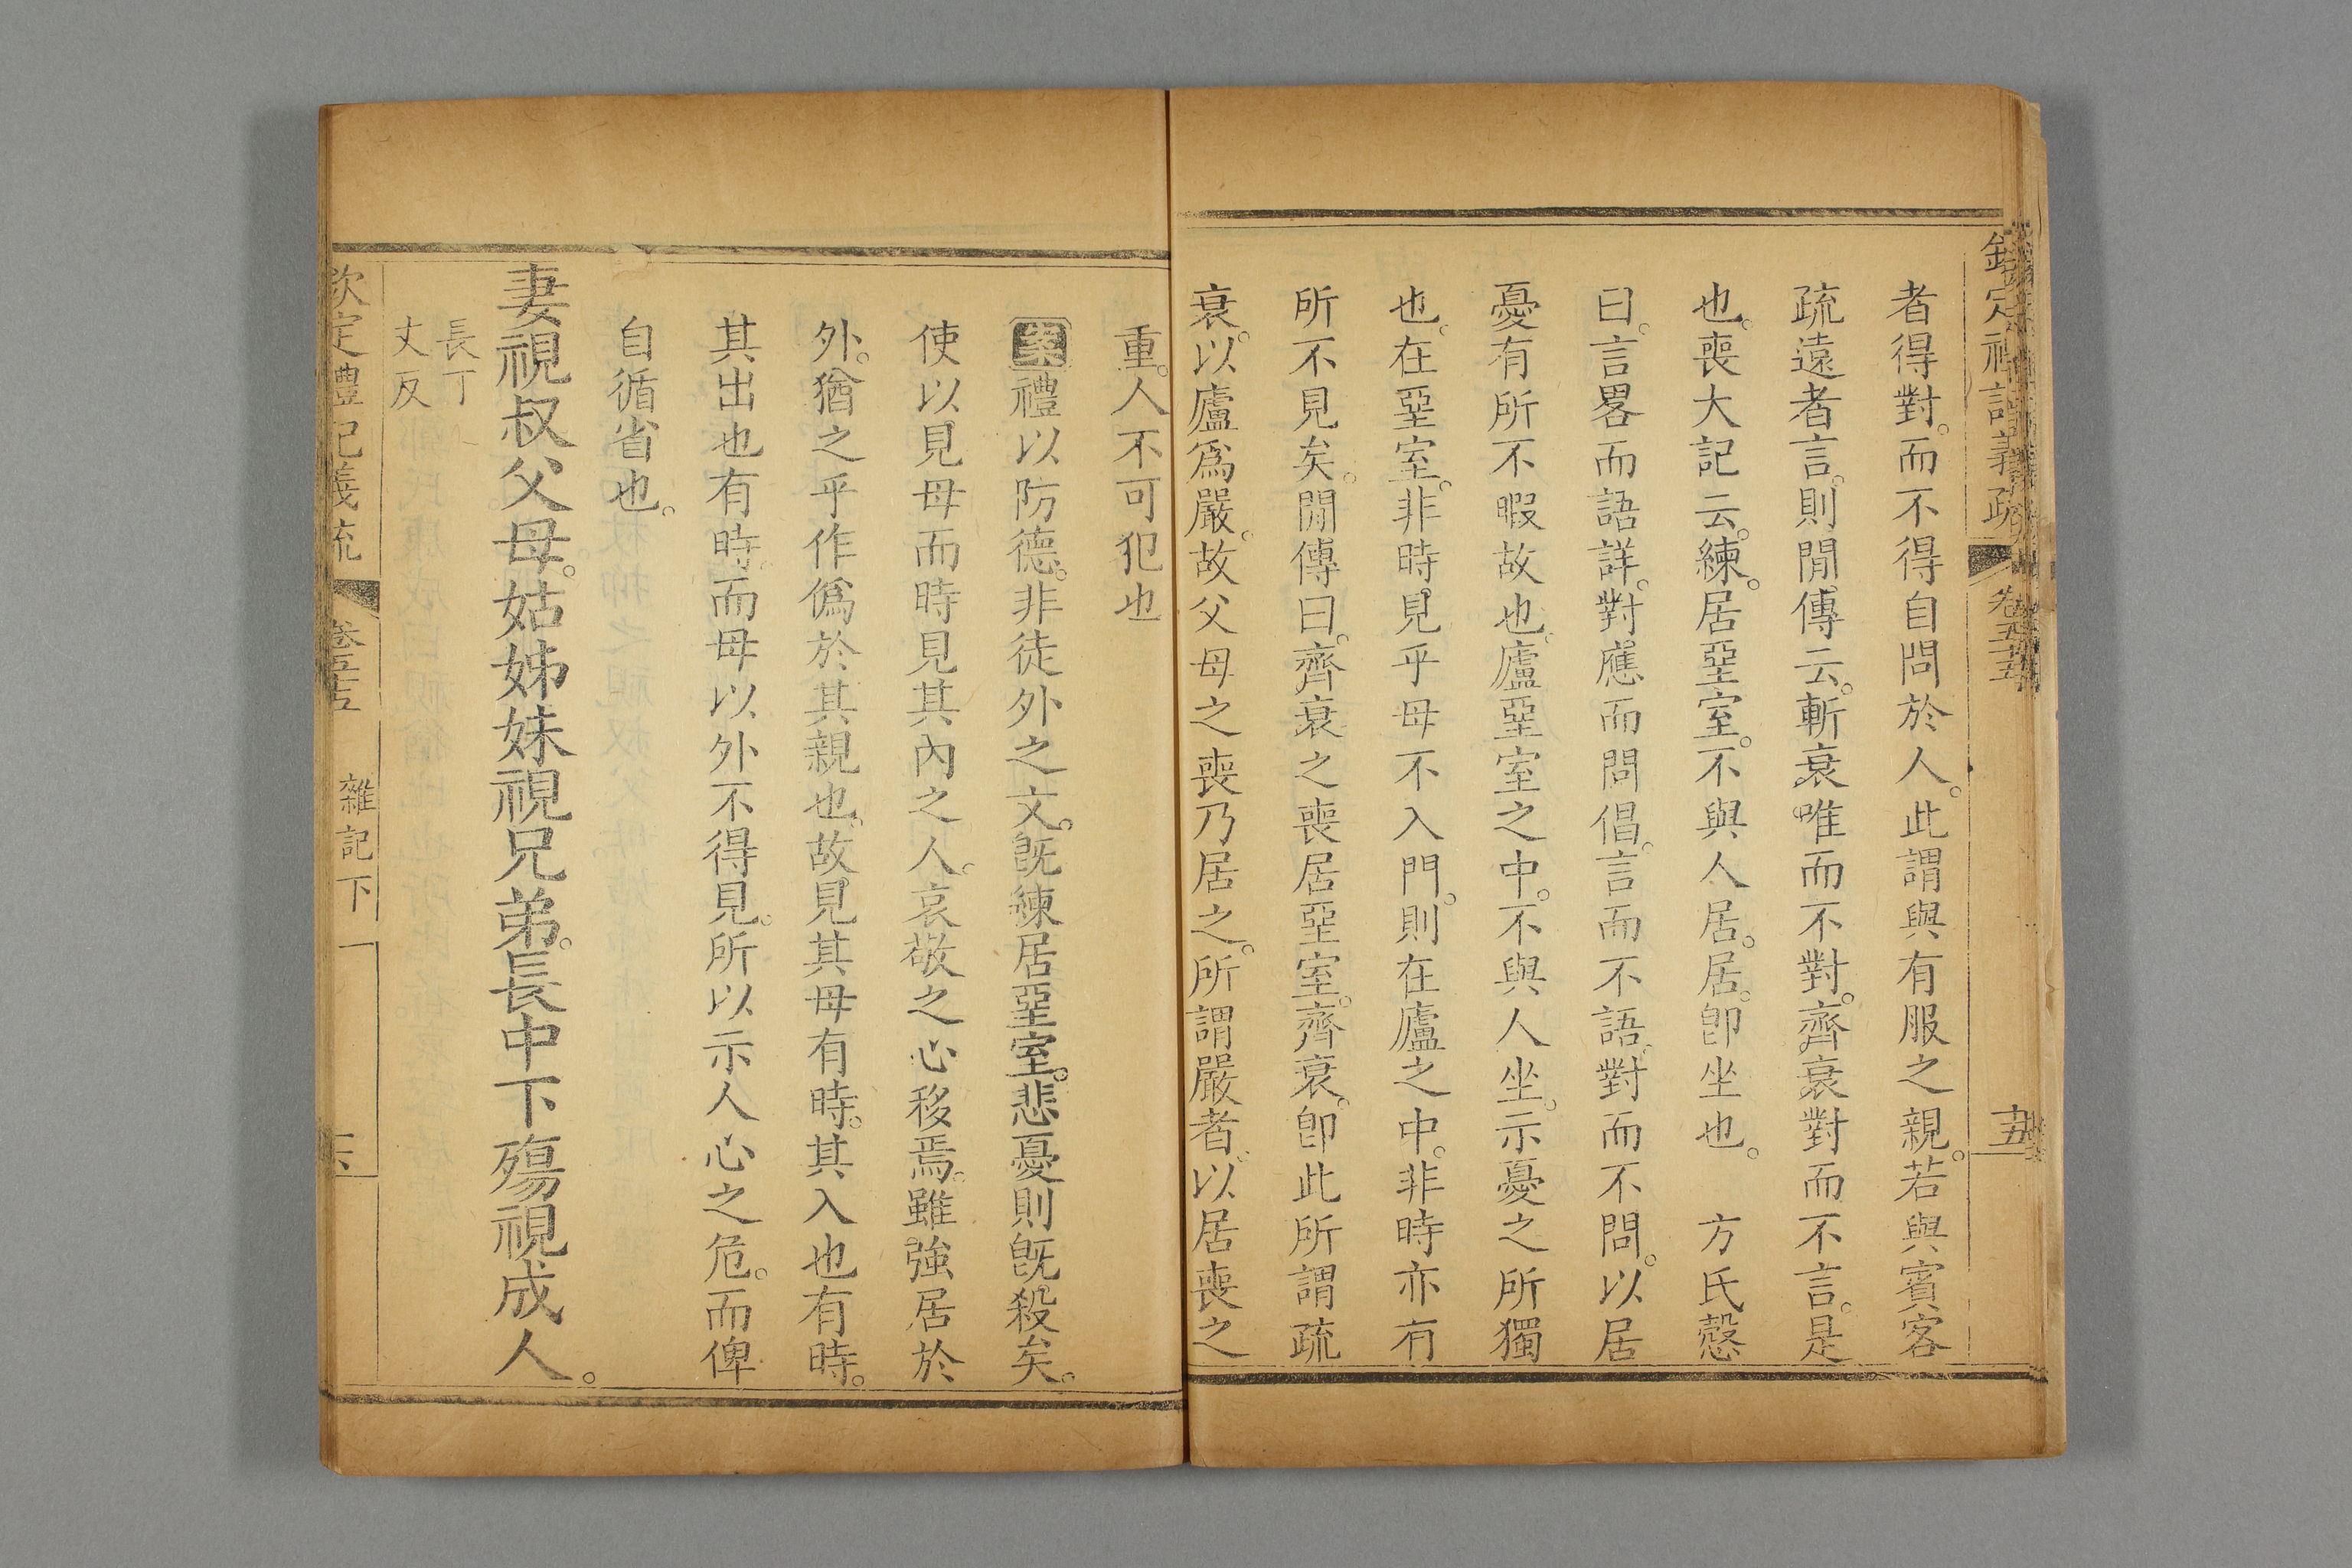 者得對。而不得自問於人。此謂與有服之親。若與賓客
疏遠者言。則閒傳云。斬衰。唯而不對。齊衰對而不言。是
也。喪大記云。練。居堊室。不與人居。居。卽坐也。　方氏慤
曰。言畧而語詳。對應而問倡。言而不語。對而不問。以居
憂有所不暇故也。廬堊室之中。不與人坐。示憂之所獨
也。在堊室。非時見乎母不入門。則在廬之中。非時亦有
所不見矣。閒傳曰。齊衰之喪居堊室。齊衰。卽此所謂疏
衰。以廬爲嚴。故父母之喪乃居之。所謂嚴者。以居喪之
重。人不可犯也
案禮以防德。非徒外之文。旣練居堊室。悲憂則旣殺矣。
使以見母而時見其內之人。哀敬之心移焉。雖強居於
外。猶之乎作僞於其親也。故見其母有時。其入也有時。
其出也有時。而母以外不得見。所以示人心之危。而俾
自循省也。
妻視叔父母。姑姊妹視兄弟。長中下殤視成人。
長丁
丈反
欽定禮記義疏
卷五十五
雜記下